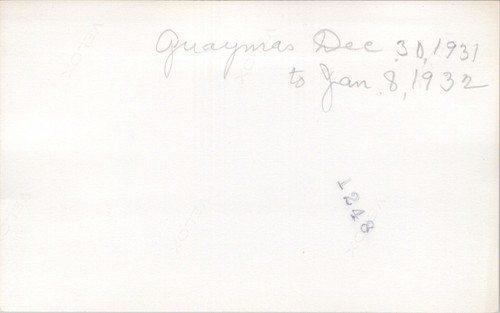 Guaymas Dec 30, 1931
to Jan 8, 1932
1248